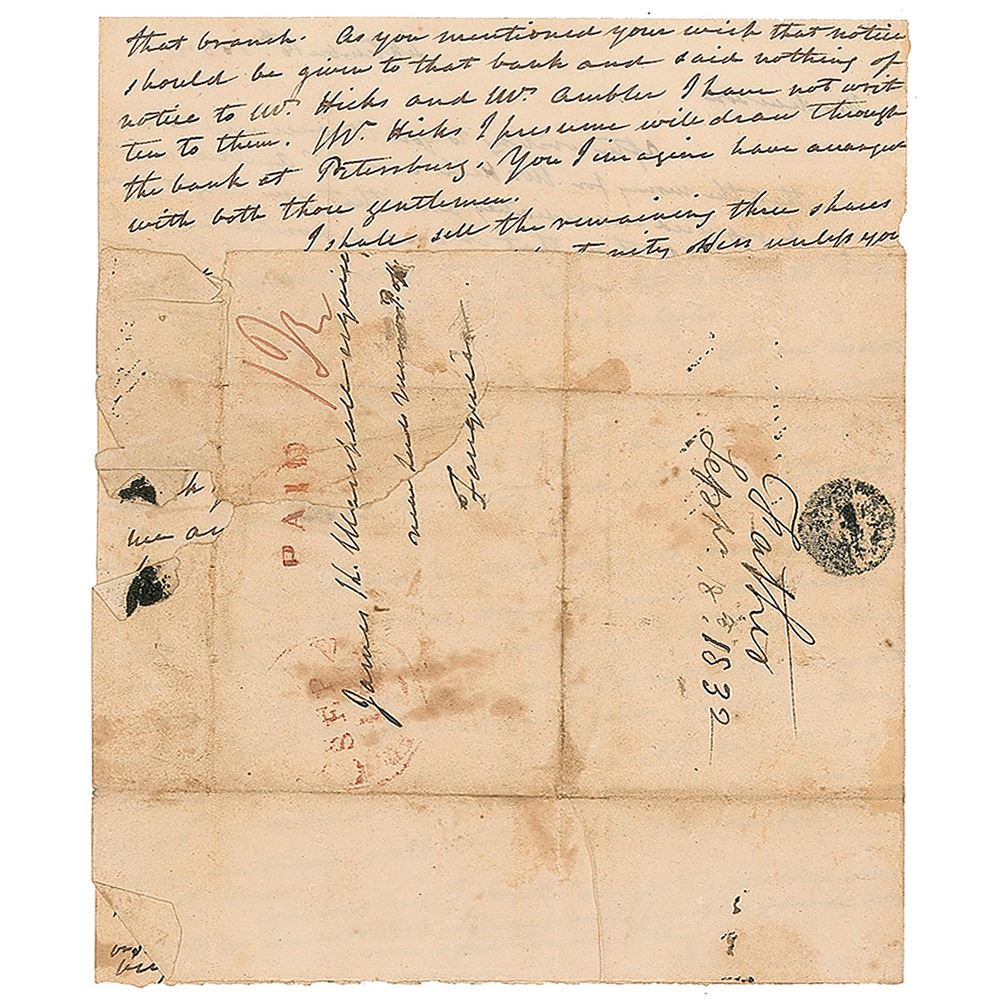 that branch. As you mentioned your wish that notice
should be given to that bank and said nothing of
notice to Mr. Hicks and Mr. Ambler I have not writ
ten to them. Mr. Hicks I presume will draw through
the bank at Petersburg. You I imagine have arranged
with both those gentlemen.
I shall sell the remaining three shares
unless you
me
12½
PAID
James K. Marshall esquire
Fauquier
SEP
Septr. 8th 1832